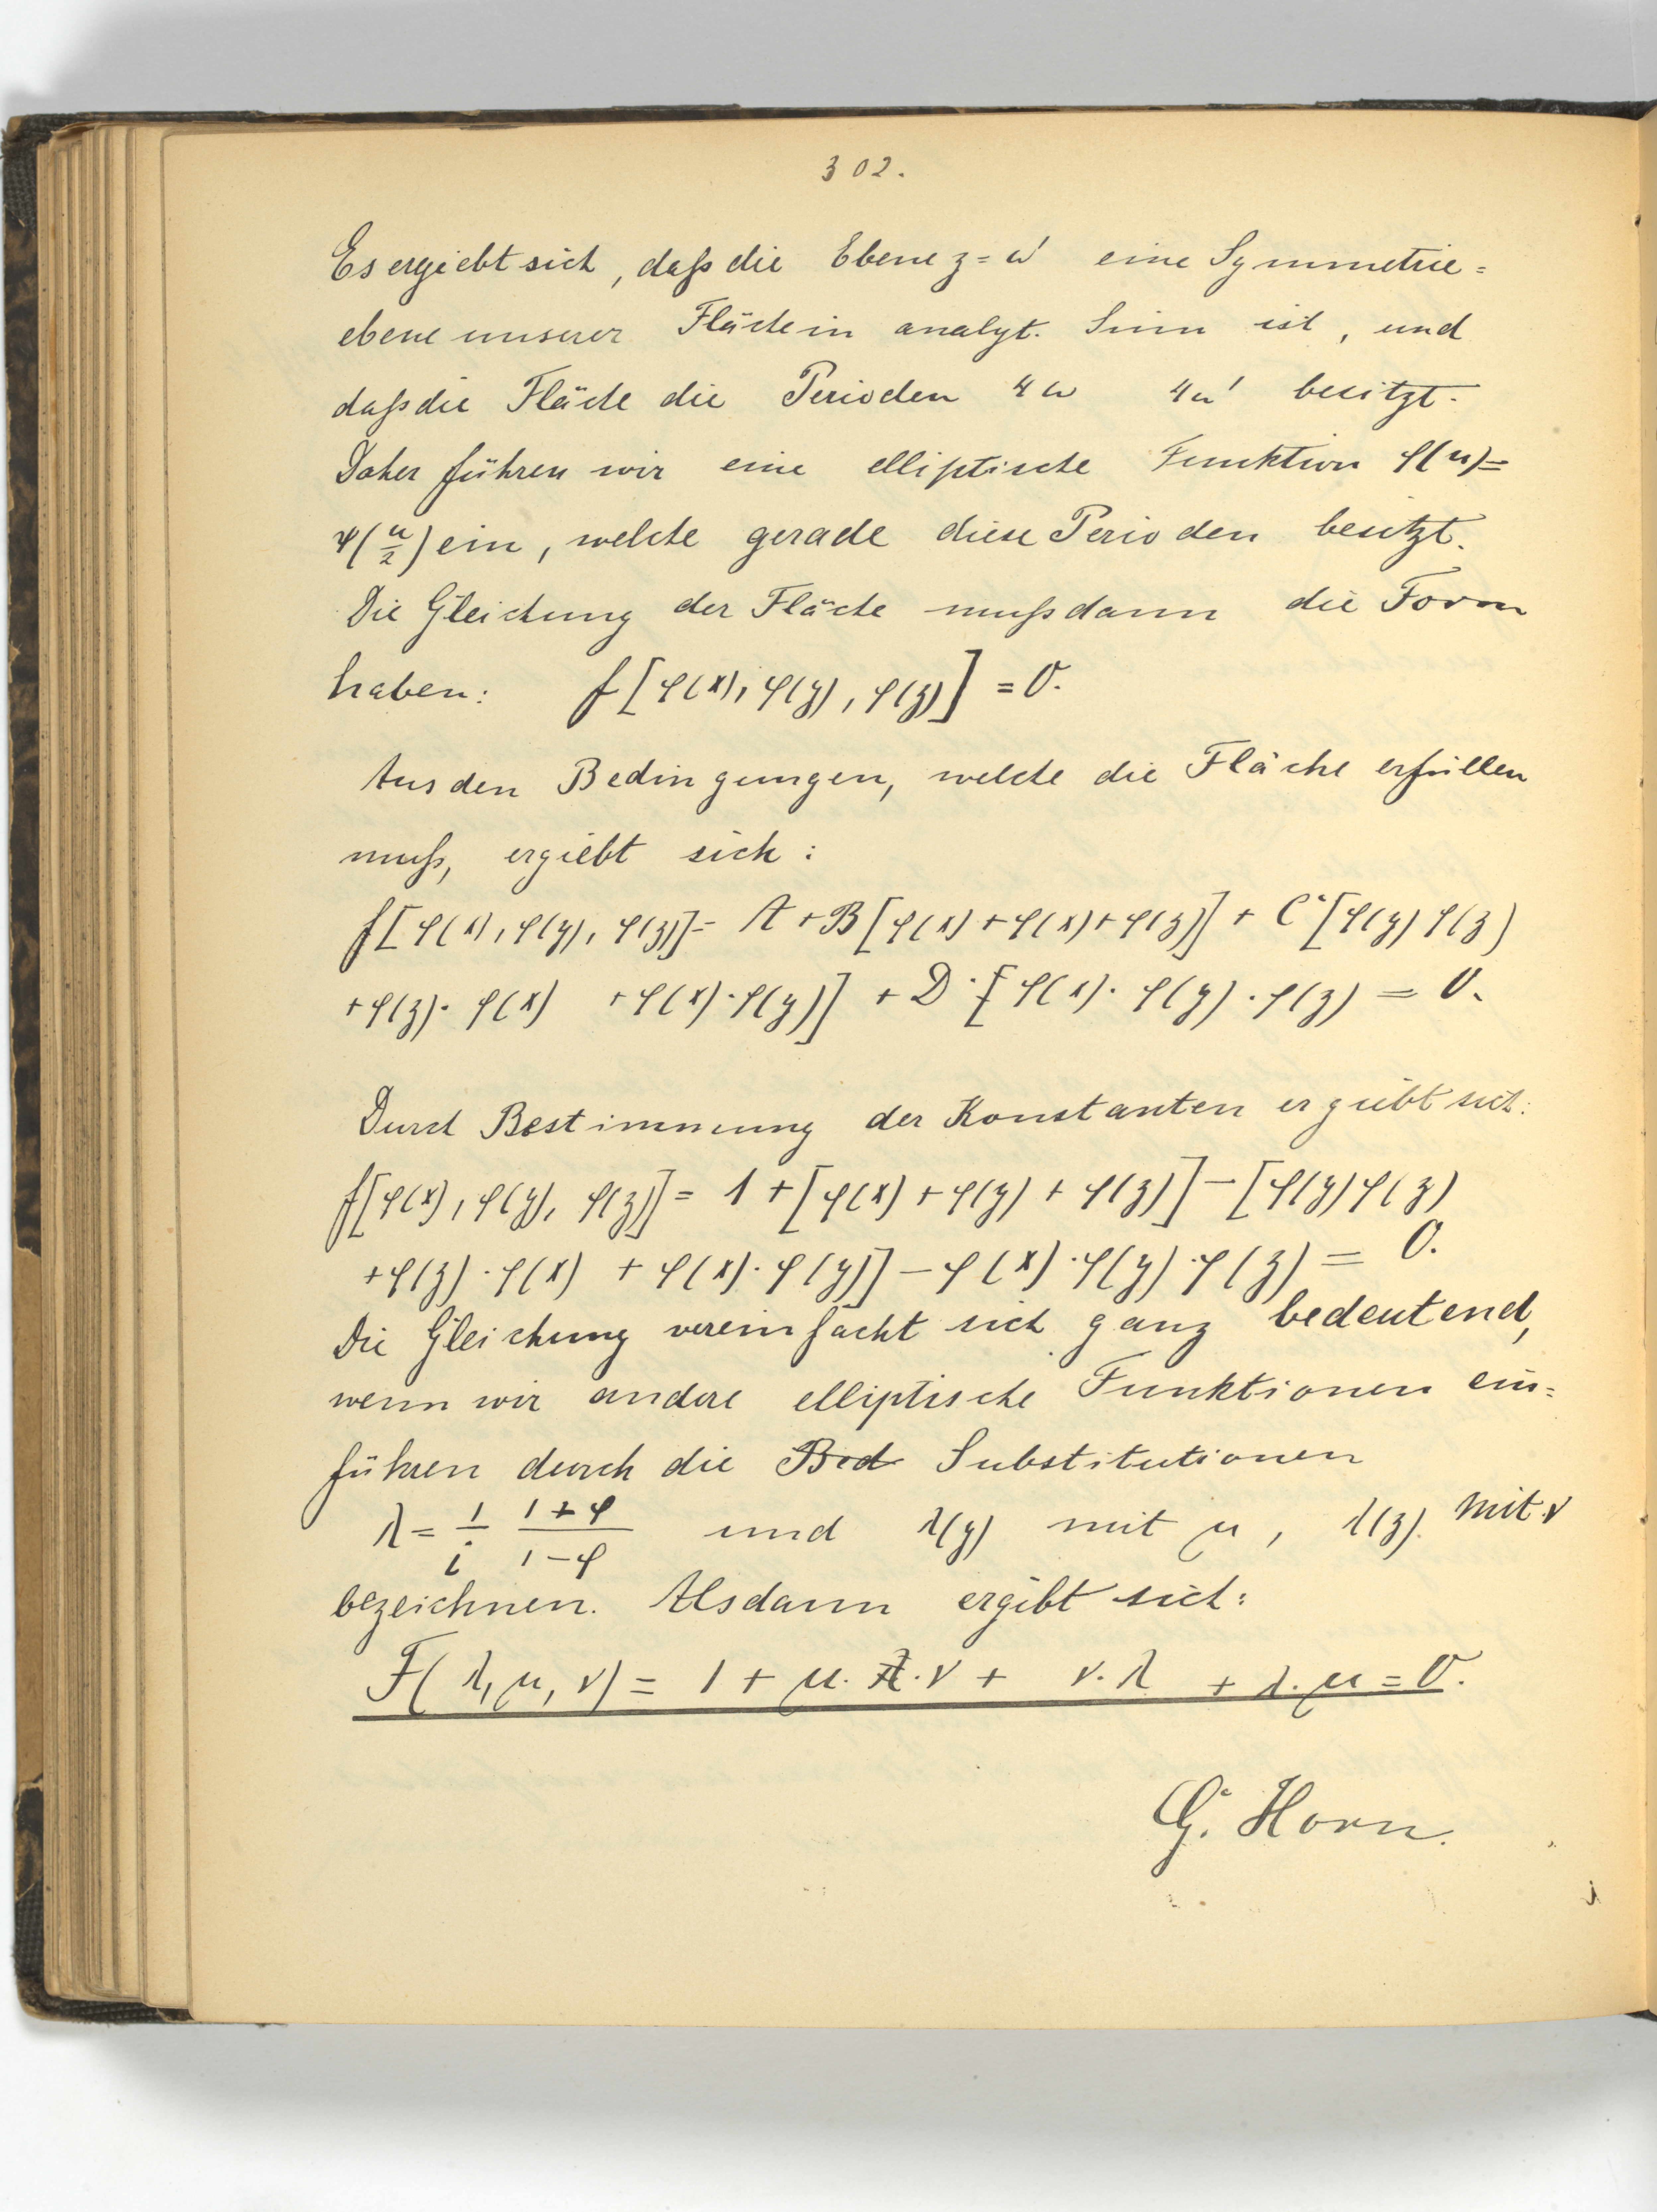 302.
Es ergiebt sich, daß die Ebene z = ω' eine Symmetrie=
ebene unserer Fläche in analyt. Sinn ist, und
daß die Fläche die Perioden 4ω 4ω' besitzt.
Daher führen wir eine elliptische Funktion φ(u)=
ψ(u/2) ein, welche gerade diese Perioden besitzt.
Die Gleichung der Fläche muß dann die Form
haben: f[φ(x), φ(y), φ(z)] = 0.
Aus den Bedingungen, welche die Fläche erfüllen
muß, ergiebt sich:
f[φ(x), φ(y), φ(z)] = A + B[φ(x) + φ(x) + φ(z)] + C·[φ(y) φ(z)
+ φ(z)· φ(x) + φ(x)·φ(y)] + D·[φ(x)· φ(y)·φ(z) = 0.
Durch Bestimmung der Konstanten ergiebt sich:
f[φ(x), φ(y), φ(z)] = 1 + [φ(x) + φ(y) + φ(z)] − [φ(y)φ(z)
+ φ(z)·φ(x) + φ(x)·φ(y)] − φ(x)·φ(y)·φ(z) = 0.
Die Gleichung vereinfacht sich ganz bedeutend,
wenn wir andere elliptische Funktionen ein=
führen durch die Bed Substitutionen
λ = 1/i (1+φ)/(1−φ) und λ(y) mit μ, λ(z) mit ν
bezeichnen. Alsdann ergibt sich:
F(λ, μ, ν) = 1 + μ·ν + ν·λ + λ·μ = 0.
G. Horn.